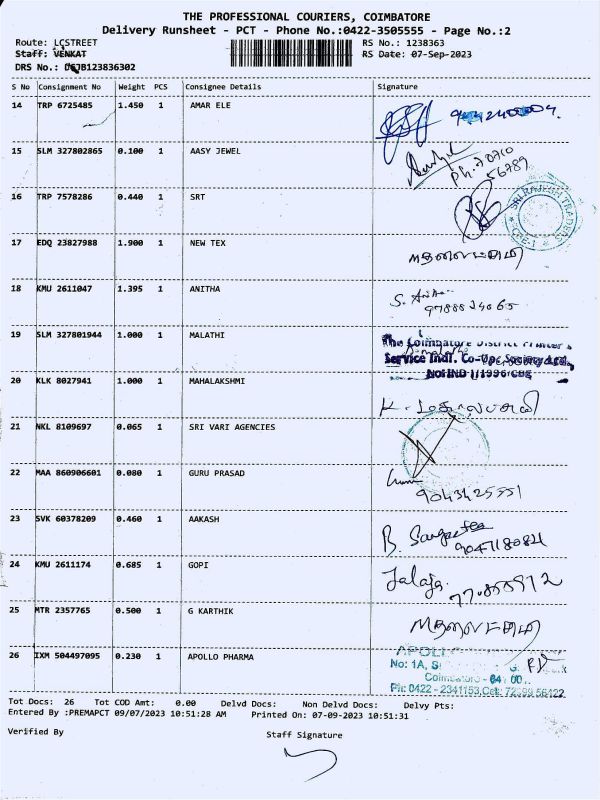 THE PROFESSIONAL COURIERS, COIMBATORE
Delivery Runsheet - PCT - Phone No.:0422-3505555 - Page No.:2
Route: LCSTREET RS No.: 1238363
Staff: VENKAT RS Date: 07-Sep-2023
DRS No.: B123836302
S No Consignment No Weight PCS Consignee Details Signature
14 TRP 6725485 1.450 1 AMAR ELE
15 SLM 327802865 0.100 1 AASY JEWEL
Ph: 70710
56789
16 TRP 7578286 0.440 1 SRT
SRI RAJESH TRADERS
CBE-1
17 EDQ 23827988 1.900 1 NEW TEX
18 KMU 2611047 1.395 1 ANITHA
S. Anitha
9788824065
19 SLM 327801944 1.000 1 MALATHI
The Coimbatore District Printer's
Service Indl. Co-Op. Society Ltd.
No IND I/1996/CBE
20 KLK 8027941 1.000 1 MAHALAKSHMI
21 NKL 8109697 0.065 1 SRI VARI AGENCIES
22 MAA 860906601 0.080 1 GURU PRASAD
9043425551
23 SVK 60378209 0.460 1 AAKASH
B. Sangeetha
9047180821
24 KMU 2611174 0.685 1 GOPI
Jalaja
25 MTR 2357765 0.500 1 G KARTHIK
26 IXM 504497095 0.230 1 APOLLO PHARMA
APOLL
No: 1A, S
Coimbatore - 64 00
Ph: 0422 - 2341153, Cell: 72999 56422
Tot Docs: 26 Tot COD Amt: 0.00 Delvd Docs: Non Delvd Docs: Delvy Pts:
Entered By :PREMAPCT 09/07/2023 10:51:28 AM Printed On: 07-09-2023 10:51:31
Verified By Staff Signature